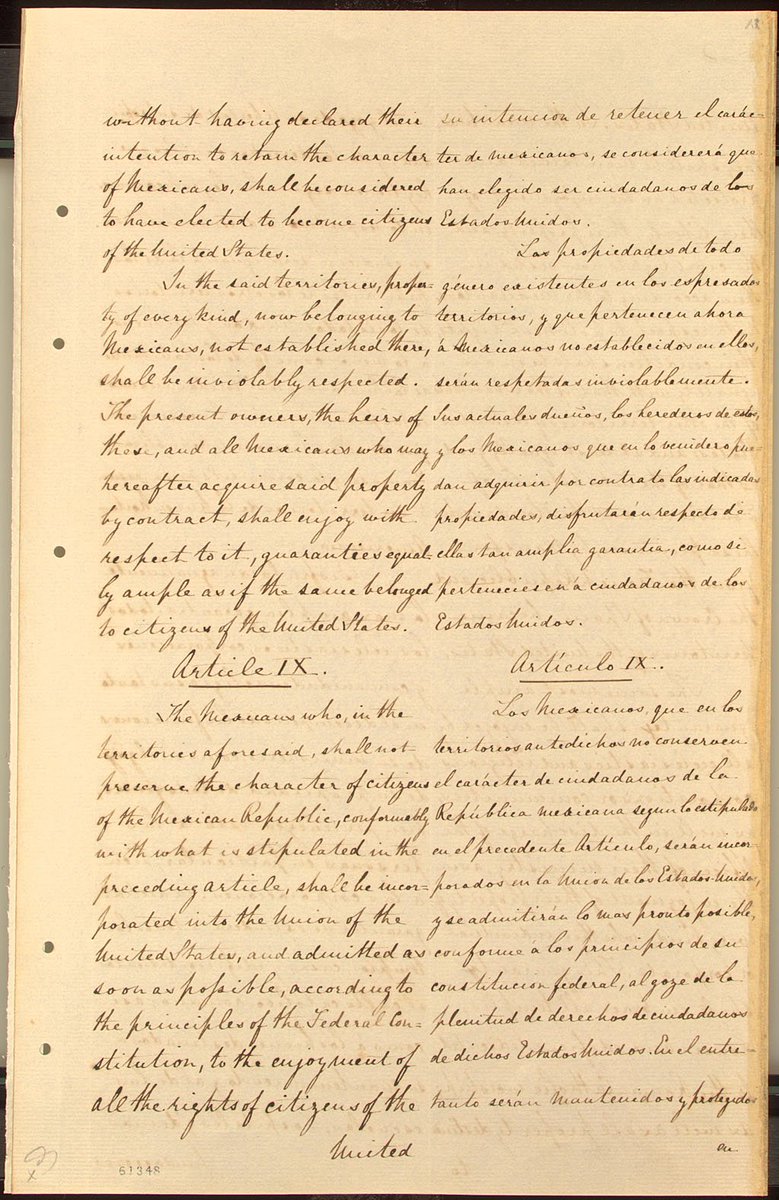 13
without having declared their
intention to retain the character
of Mexicans, shall be considered
to have elected to become citizens
of the United States.
In the said territories, proper-
ty of every kind, now belonging to
Mexicans, not established there,
shall be inviolably respected.
The present owners, the heirs of
these, and all Mexicans who may
hereafter acquire said property
by contract, shall enjoy with
respect to it, guaranties equal-
ly ample as if the same belonged
to citizens of the United States.
Article IX.
The Mexicans who, in the
territories aforesaid, shall not
preserve the character of citizens
of the Mexican Republic, conformably
with what is stipulated in the
preceding article, shall be incor-
porated into the Union of the
United States, and admitted as
soon as possible, according to
the principles of the Federal Con-
stitution, to the enjoyment of
all the rights of citizens of the
United
su intencion de retener el carác-
ter de mexicanos, se considererá que
han elegido ser ciudadanos de los
Estados Unidos.
Las propiedades de todo
género existentes en los espresados
territorios, y que pertenecen ahora
á Mexicanos no establecidos en ellos,
serán respetadas inviolablemente.
Sus actuales dueños, los herederos de estos,
y los Mexicanos que en lo venidero pue-
dan adquirir por contrato las indicadas
propiedades, disfrutarán respecto de
ellas tan amplia garantia, como si
perteneciesen á ciudadanos de los
Estados Unidos.
Artículo IX.
Los Mexicanos, que en los
territorios antedichos no conserven
el carácter de ciudadanos de la
República mexicana segun lo estipulado
en el precedente Artículo, serán incor-
porados en la Union de los Estados-Unidos,
y se admitirán lo mas pronto posible,
conforme á los principios de su
constitucion federal, al goze de la
plenitud de derechos de ciudadanos
de dichos Estados Unidos. En el entre-
tanto serán mantenidos y protegidos
en
61348